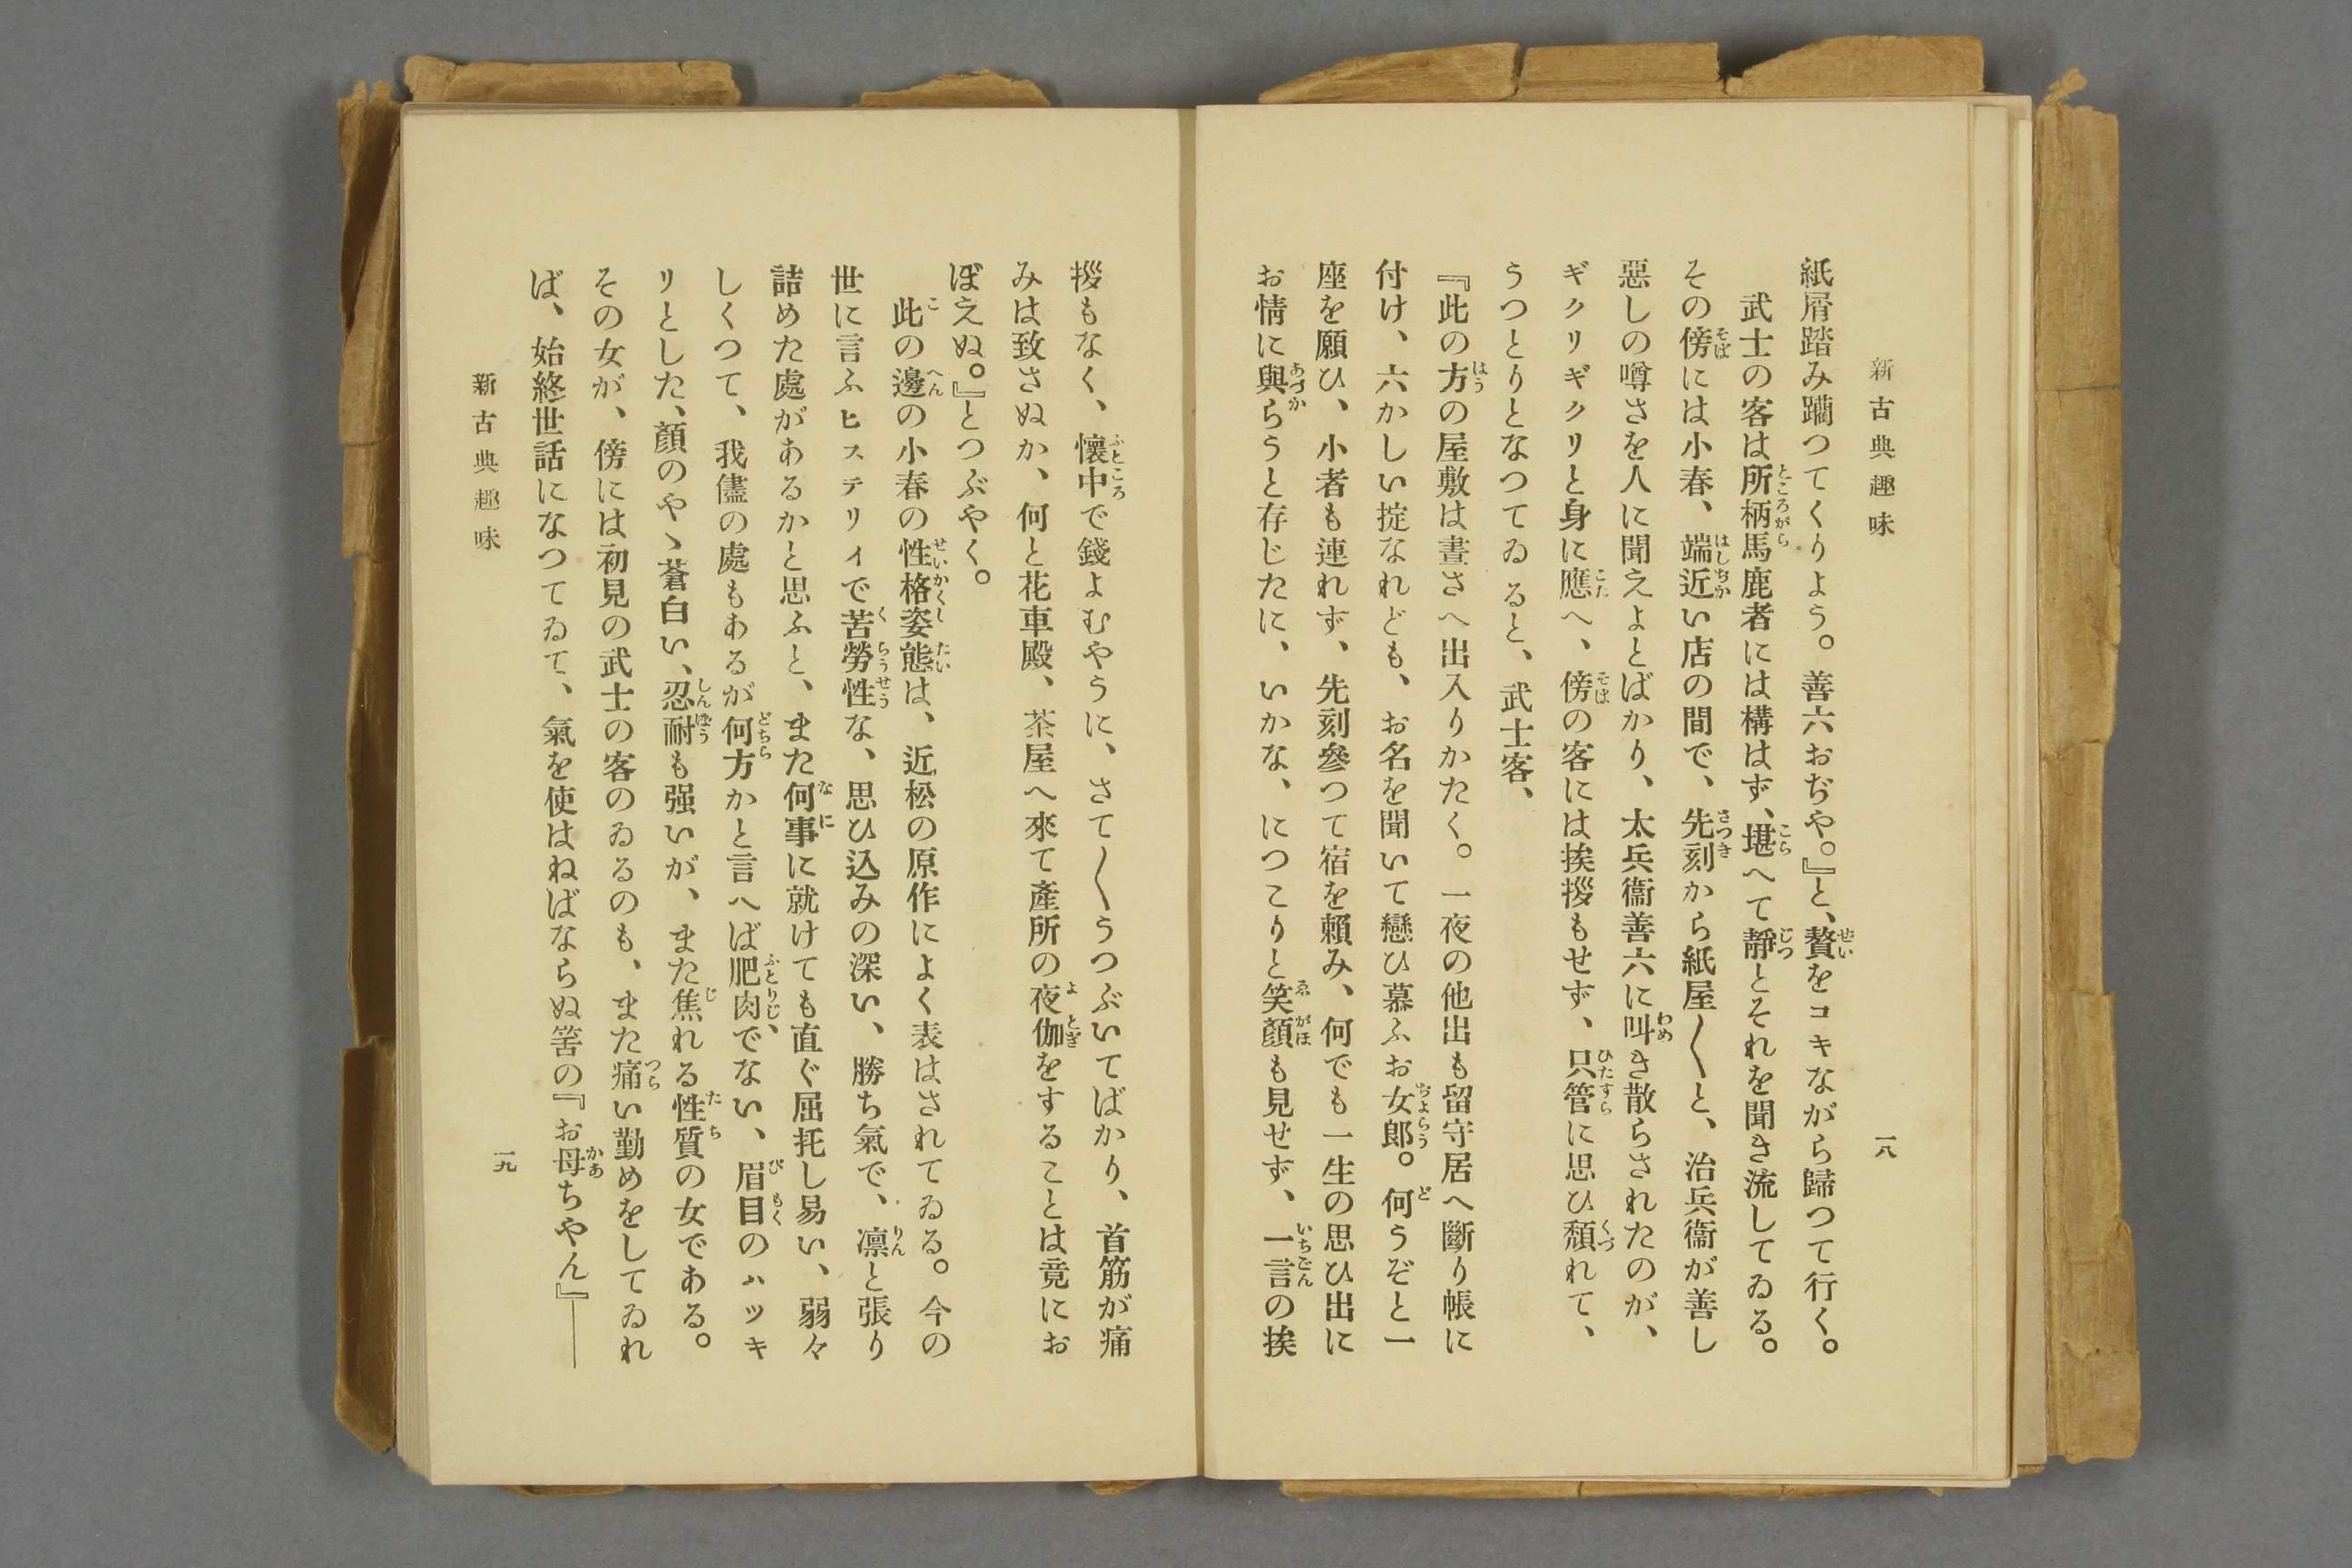 新古典趣味
一八
紙屑踏み躙つてくりよう。善六おぢや。』と、贅をコキながら歸つて行く。
武士の客は所柄馬鹿者には構はず、堪へて靜とそれを聞き流してゐる。
その傍には小春、端近い店の間で、先刻から紙屋〳〵と、治兵衞が善し
惡しの噂さを人に聞えよとばかり、太兵衞善六に叫き散らされたのが、
ギクリギクリと身に應へ、傍の客には挨拶もせず、只管に思ひ頽れて、
うつとりとなつてゐると、武士客、
『此の方の屋敷は晝さへ出入りかたく。一夜の他出も留守居へ斷り帳に
付け、六かしい掟なれども、お名を聞いて戀ひ慕ふお女郎。何うぞと一
座を願ひ、小者も連れず、先刻參つて宿を賴み、何でも一生の思ひ出に
お情に與らうと存じたに、いかな、につこりと笑顏も見せず、一言の挨
拶もなく、懷中で錢よむやうに、さて〳〵うつぶいてばかり、首筋が痛
みは致さぬか、何と花車殿、茶屋へ來て產所の夜伽をすることは竟にお
ぼえぬ。』とつぶやく。
此の邊の小春の性格姿態は、近松の原作によく表はされてゐる。今の
世に言ふヒステリイで苦勞性な、思ひ込みの深い、勝ち氣で、凛と張り
詰めた處があるかと思ふと、また何事に就けても直ぐ屈托し易い、弱々
しくつて、我儘の處もあるが何方かと言へば肥肉でない、眉目のハツキ
リとした、顏のやゝ蒼白い、忍耐も强いが、また焦れる性質の女である。
その女が、傍には初見の武士の客のゐるのも、また痛い勤めをしてゐれ
ば、始終世話になつてゐて、氣を使はねばならぬ筈の『お母ちやん』――
新古典趣味
一九